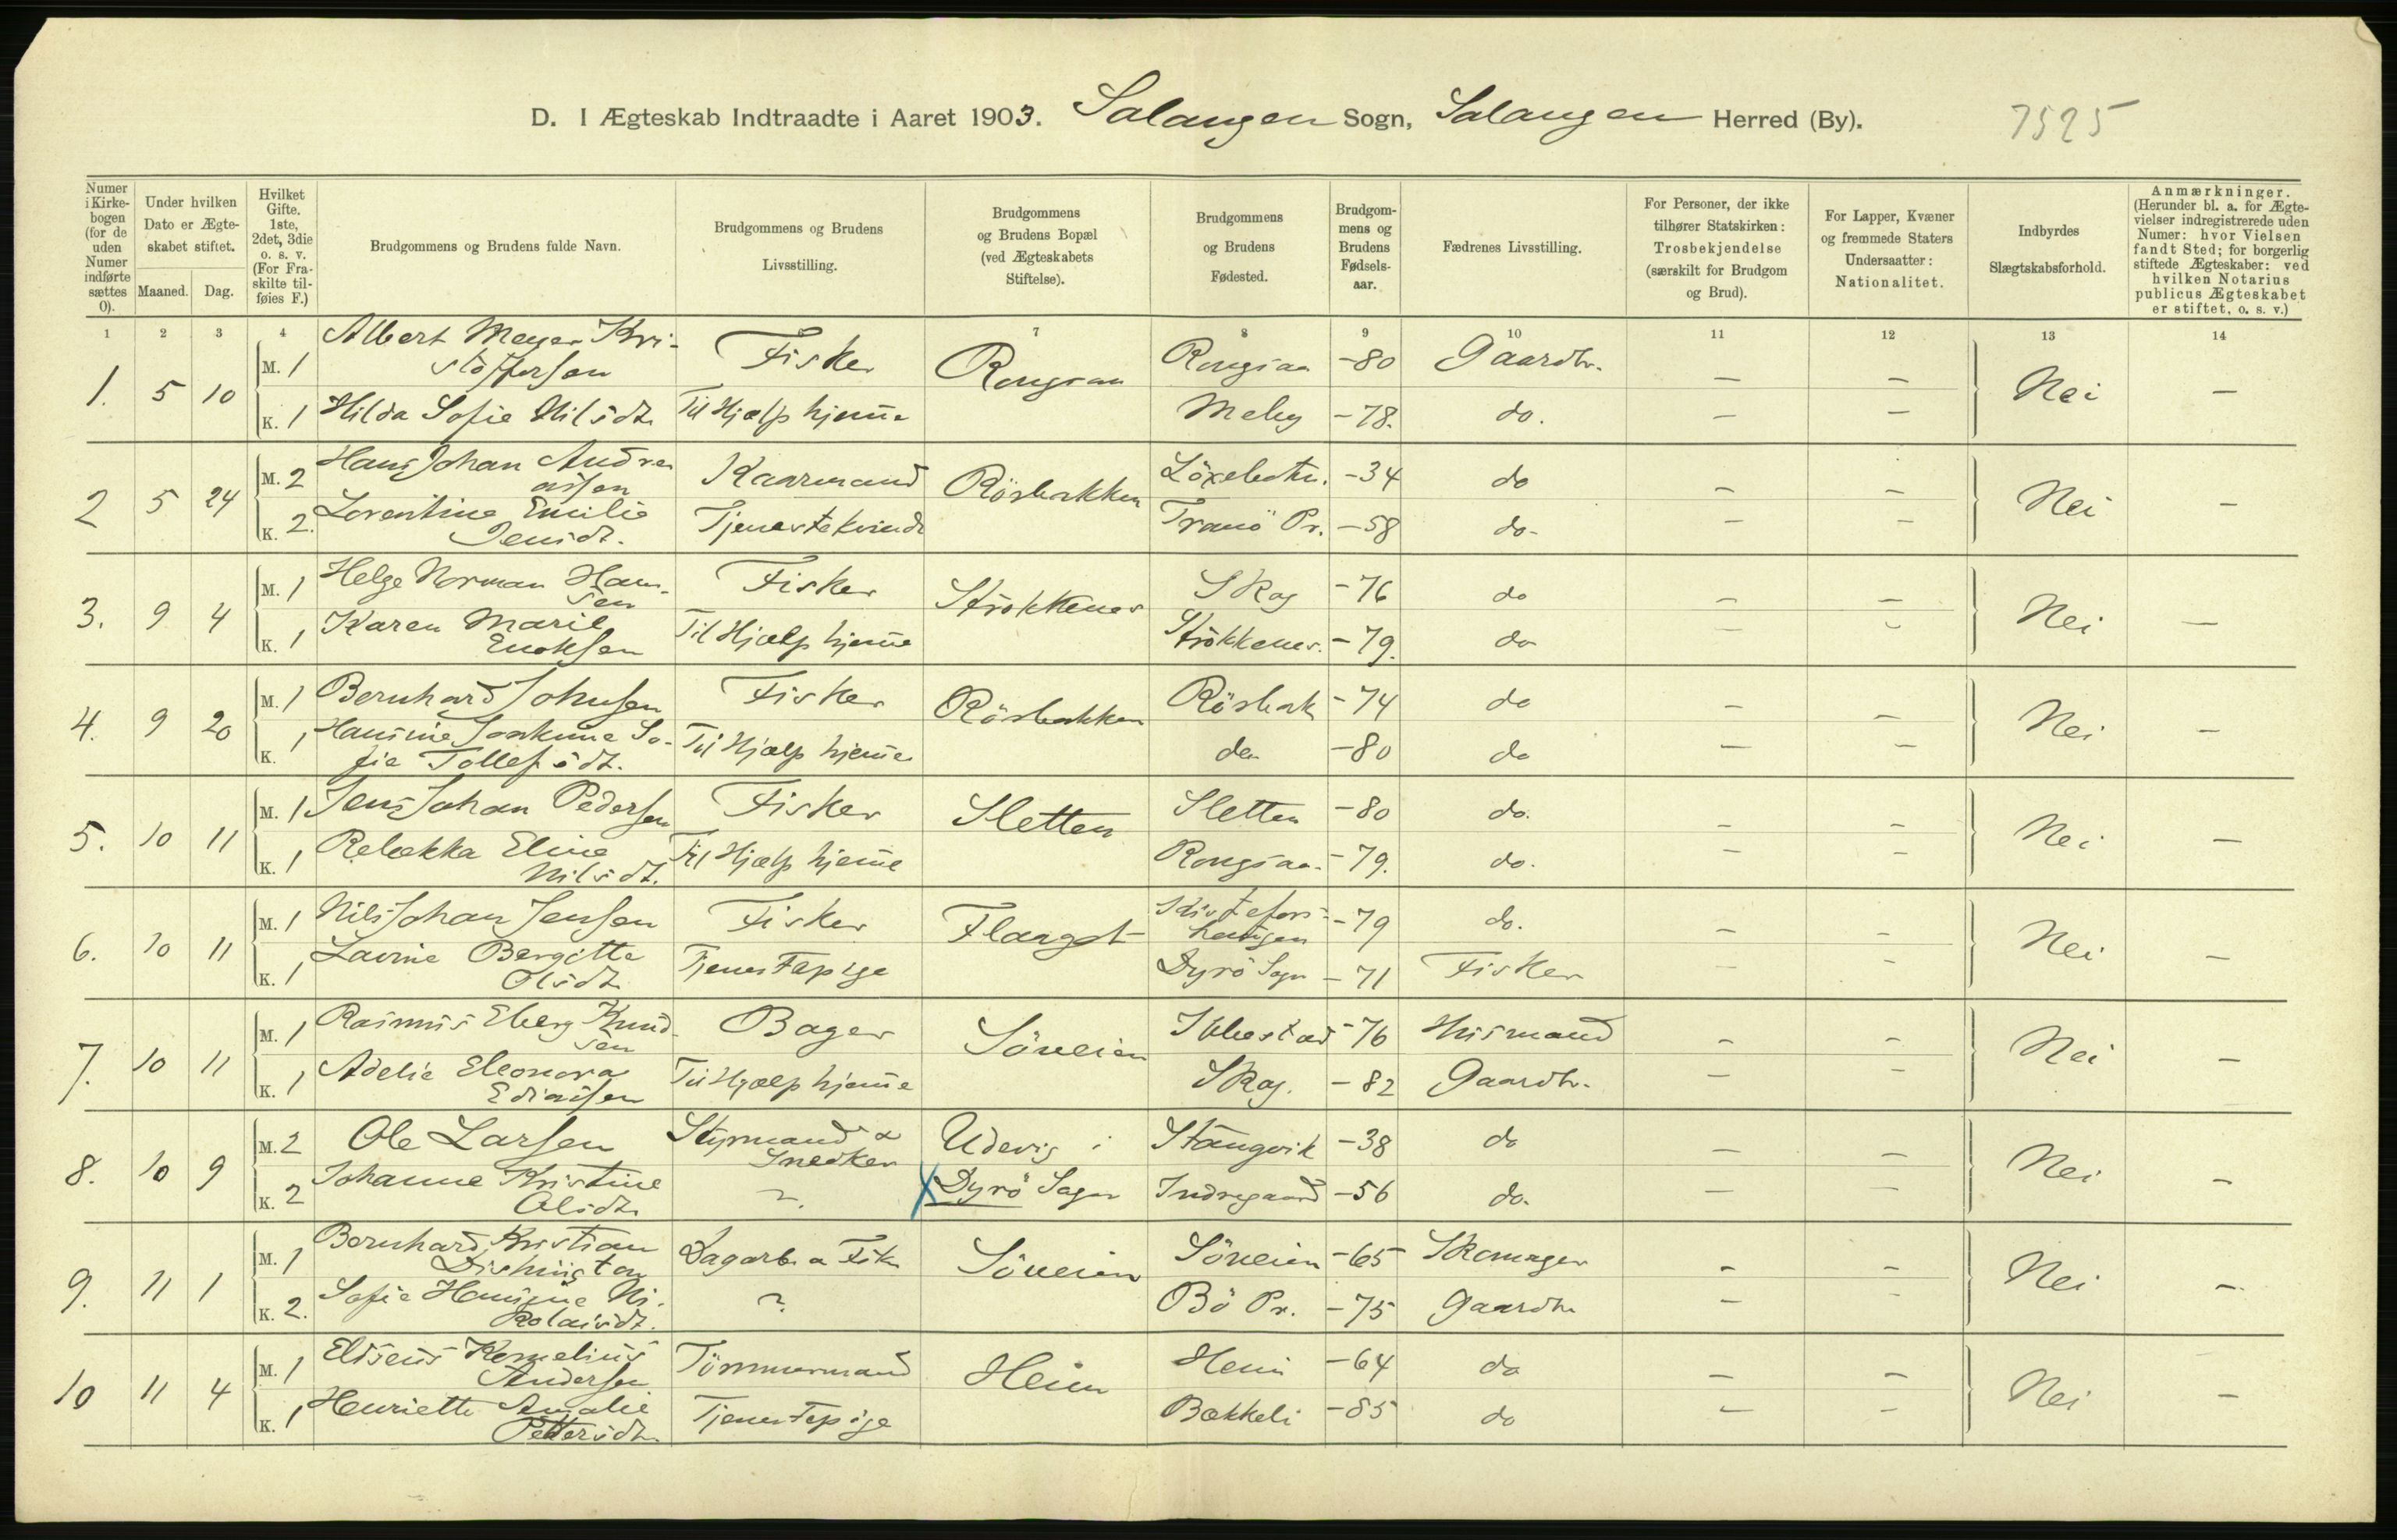 D. I Ægteskab Indtraadte i Aaret 1903. Salangen Sogn, Salangen Herred (By). 7525
Numer i Kirkebogen (for de uden Numer indførte sættes 0).
Under hvilken Dato er Ægteskabet stiftet.
Maaned. Dag.
Hvilket Gifte. 1ste, 2det, 3die o. s. v. (For Fraskilte tilføies F.)
Brudgommens og Brudens fulde Navn.
Brudgommens og Brudens Livsstilling.
Brudgommens og Brudens Bopæl (ved Ægteskabets Stiftelse).
Brudgommens og Brudens Fødested.
Brudgommens og Brudens Fødselsaar.
Fædrenes Livsstilling.
For Personer, der ikke tilhører Statskirken: Trosbekjendelse (særskilt for Brudgom og Brud).
For Lapper, Kvæner og fremmede Staters Undersaatter: Nationalitet.
Indbyrdes Slægtskabsforhold.
Anmærkninger. (Herunder bl. a. for Ægtevielser indregistrerede uden Numer: hvor Vielsen fandt Sted; for borgerlig stiftede Ægteskaber: ved hvilken Notarius publicus Ægteskabet er stiftet, o. s. v.)
1 2 3 4 6 7 8 9 10 11 12 13 14
1. 5 10 M. 1 Albert Meyer Kristoffersen Fisker Rongsaa Rongsaa -80 Gaardbr. — — Nei —
K. 1 Hilda Sofie Nilsdt. Til Hjælp hjemme Meby -78. do. — —
2 5 24 M. 2 Hans Johan Andreassen Kaarmand Rösbakken Löxebotn. -34 do — — Nei —
K. 2. Lorentine Emilie Jensdt. Tjenestekvinde Tranö Pr. -58 do- — —
3. 9 4 M. 1 Helge Norman Hansen Fisker Strokkenes Skog -76 do — — Nei —
K. 1 Karen Marie Enoksen Til Hjælp hjemme Strokkenes. -79. do — —
4. 9 20 M. 1 Bernhard Johnsen Fisker Rösbakken Rösbak -74 do — — Nei —
K. 1 Hansine Joakime Sofie Tollefsdt. Til Hjælp hjemme den -80 do — —
5. 10 11 M. 1 Jens Johan Pedersen Fisker Sletten Sletten -80 do. — — Nei —
K. 1 Rebekka Eline Nilsdt. Til Hjælp hjemme Rongsaa. -79. do. — —
6. 10 11 M. 1 Nils Johan Jensen Fisker Flaaget -79 do. — — Nei —
K. 1 Lavine Bergitte Olsdt. Tjenestepige Dyrö Sogn -71 Fisker — —
7. 10 11 M. 1 Rasmus Eberg Knudsen Bager Söveien Ibbestad -76 Husmand — — Nei —
K. 1 Adelie Eleonora Ediassen Til Hjælp hjemme Skog. -82 Gaardbr. — —
8. 10 9 M. 2 Ole Larsen Styrmand & Snedker Udevig i Stangvik -38 do — — Nei —
K. 2 Johanne Kristine Olsdt. ?. X Dyrö Sogn Indregaard -56 do. — —
9. 11 1 M. 1 Bernhard Kristian Dishington Dagarb. a Fisk. Söveien Söveien -65 Skomager — — Nei —
K. 2. Sofie Hansine Nikolaisdt. ? Bö Pr. -75 Gaardbr. — —
10 11 4 M. 1 Eliseus Kornelius Andersen Tömmermand Heim Heim -64 do — — Nei —
K. 1 Henriette Amalie Pettersdt. Tjenestepige Bækkeli -85 do — —